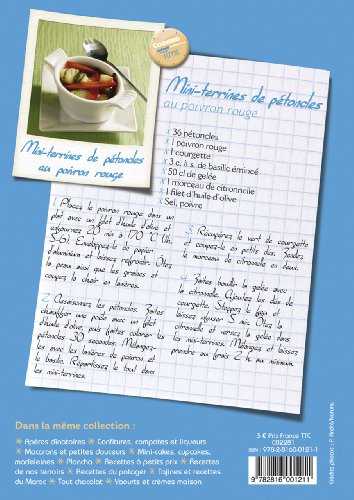 Mini-terrines de pétoncles
au poivron rouge
Mini-terrines de pétoncles
au poivron rouge
x 36 pétoncles
x 1 poivron rouge
x 1 courgette
x 3 c. à s. de basilic émincé
x 50 cl de gelée
x 1 morceau de citronnelle
x 1 filet d'huile d'olive
x Sel, poivre
1 Placez le poivron rouge dans un
plat avec un filet d'huile d'olive et
enfournez 20 min à 170 °C (th.
5-6). Enveloppez-le de papier
d'aluminium et laissez refroidir. Ôtez
la peau ainsi que les graines et
coupez la chair en lanières.
2 Assaisonnez les pétoncles. Faites
chauffer une poêle avec un filet
d'huile d'olive, puis faites colorer les
pétoncles 30 secondes. Mélangez-
les avec les lanières de poivron et
le basilic. Répartissez le tout dans
les mini-terrines.
3 Récupérez le vert de courgette
et coupez-le en petits dés. Fendez
le morceau de citronnelle en deux.
4 Faites bouillir la gelée avec
la citronnelle. Ajoutez les dés de
courgette. Stoppez le feu et
laissez infuser 5 min. Ôtez la
citronnelle et versez la gelée dans
les mini-terrines. Mélangez et laissez
prendre au frais 2 h au minimum.
Dans la même collection :
* Apéros dînatoires * Confitures, compotes et liqueurs
* Macarons et petites douceurs * Mini-cakes, cupcakes,
madeleines * Plancha * Recettes à petits prix * Recettes
de nos terroirs * Recettes du potager * Tajines et recettes
du Maroc * Tout chocolat * Yaourts et crèmes maison
5 € Prix France TTC
ISBN : 978-2-8160-0121-1
9 782816 001211